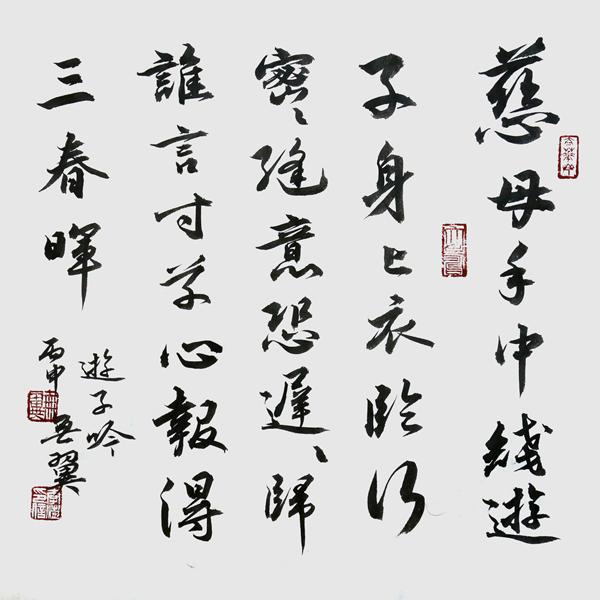 慈母手中綫遊
子身上衣臨行
密〻縫意恐遲〻歸
誰言寸草心報得
三春暉
遊子吟
丙申吳翼